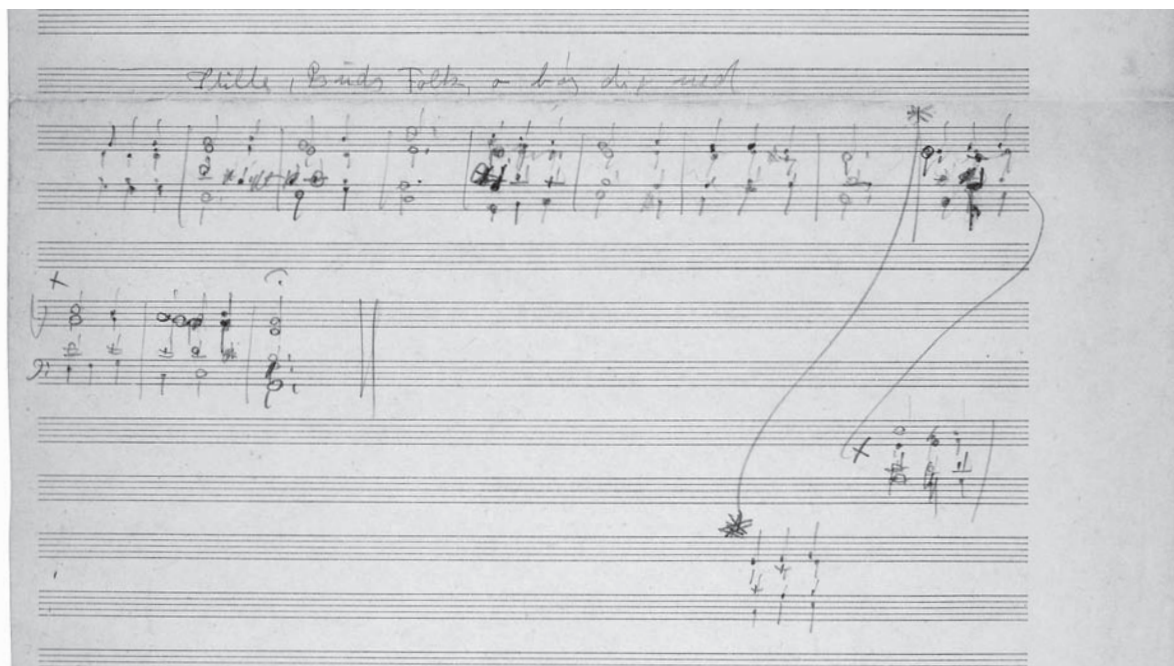 Stille, Guds Folk, o bøj dig ned